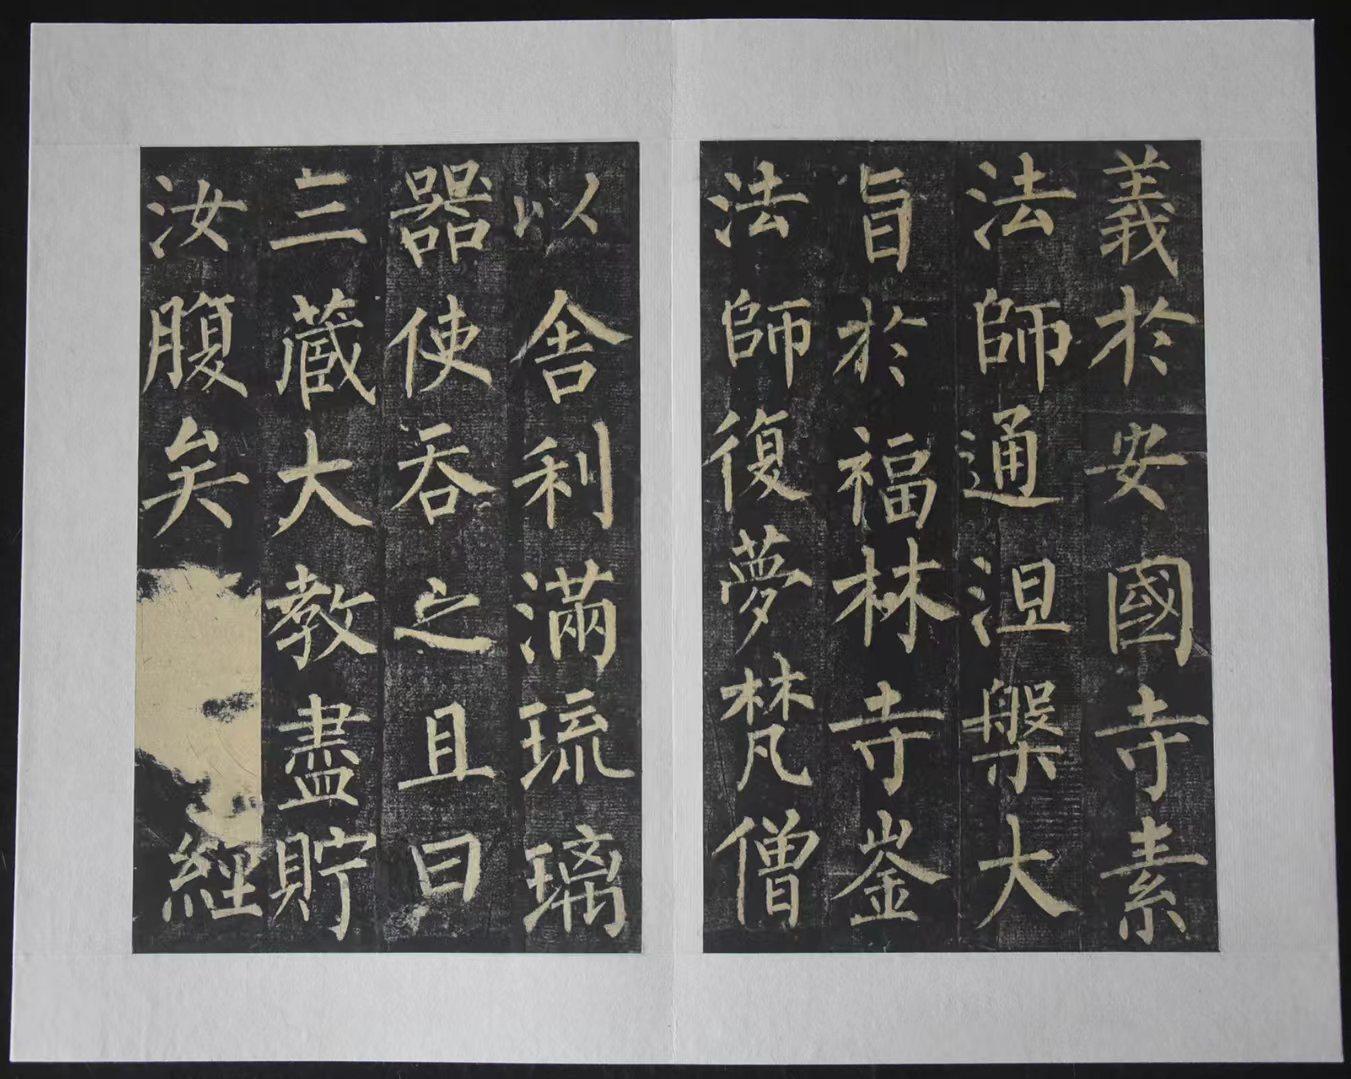 義於安國寺素
法師通涅槃大
旨於福林寺崟
法師復夢梵僧
以舍利滿琉璃
器使吞之且曰
三藏大教盡貯
汝腹矣
經